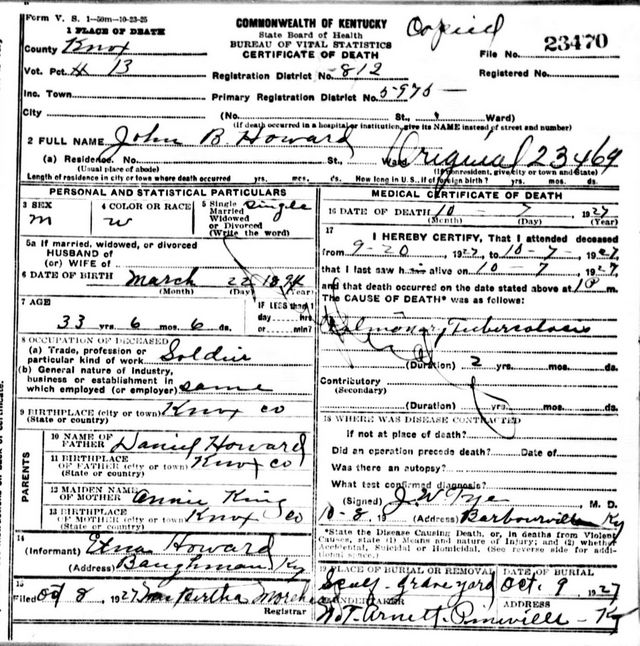 Form V. S. 1—50m—10-23-25
1 PLACE OF DEATH
County Knox
Vot. Pct. # 13
Inc. Town
City
COMMONWEALTH OF KENTUCKY
State Board of Health
BUREAU OF VITAL STATISTICS
CERTIFICATE OF DEATH
Copied
File No. 23470
Registration District No. 812
Registered No.
Primary Registration District No. 5975
(No. St., Ward)
(If death occurred in a hospital or institution, give its NAME instead of street and number)
2 FULL NAME John B. Howard
Original 23469
(a) Residence. No. St., Ward
(Usual place of abode) (If nonresident, give city or town and State)
Length of residence in city or town where death occurred yrs. mos. ds. How long in U. S., if of foreign birth? yrs. mos. ds.
PERSONAL AND STATISTICAL PARTICULARS
3 SEX
m
4 COLOR OR RACE
w
5 Single Single
Married
Widowed
or Divorced
(Write the word)
5a If married, widowed, or divorced
HUSBAND of
(or) WIFE of
6 DATE OF BIRTH March 22 1894
(Month) (Day) (Year)
7 AGE
33 yrs. 6 mos. 6 ds.
IF LESS than 1
day hrs.
or min.?
8 OCCUPATION OF DECEASED
(a) Trade, profession or
particular kind of work Soldier
(b) General nature of industry,
business or establishment in
which employed (or employer) same
9 BIRTHPLACE (city or town) Knox Co
(State or country)
PARENTS
10 NAME OF
FATHER Daniel Howard
11 BIRTHPLACE
OF FATHER (city or town) Knox Co
(State or country)
12 MAIDEN NAME
OF MOTHER Annie King
13 BIRTHPLACE
OF MOTHER (city or town) Knox Co
(State or country)
14
(Informant) Howard
(Address) Baughman Ky
15
Filed Oct 8, 1927 Bertha
Registrar
MEDICAL CERTIFICATE OF DEATH
16 DATE OF DEATH 10 - 7 1927
(Month) (Day) (Year)
17
I HEREBY CERTIFY, That I attended deceased
from 9-20, 1927, to 10-7-, 1927,
that I last saw him alive on 10-7, 1927,
and that death occurred on the date stated above at m.
The CAUSE OF DEATH* was as follows:
Pulmonary Tuberculosis
(Duration) 2 yrs. mos. ds.
Contributory
(Secondary)
(Duration) yrs. mos. ds.
18 WHERE WAS DISEASE CONTRACTED
if not at place of death?
Did an operation precede death? Date of
Was there an autopsy?
What test confirmed diagnosis?
(Signed) J. W. Tye M. D.
10-8, 19 (Address) Barbourville Ky
*State the Disease Causing Death, or, in deaths from Violent
Causes, state (1) Means and Nature of Injury; and (2) whether
Accidental, Suicidal or Homicidal. (See reverse side for addi-
tional space.)
19 PLACE OF BURIAL OR REMOVAL
graveyard
DATE OF BURIAL
Oct. 9 1927
20 UNDERTAKER
W. T. Arnett
ADDRESS
Pineville - Ky